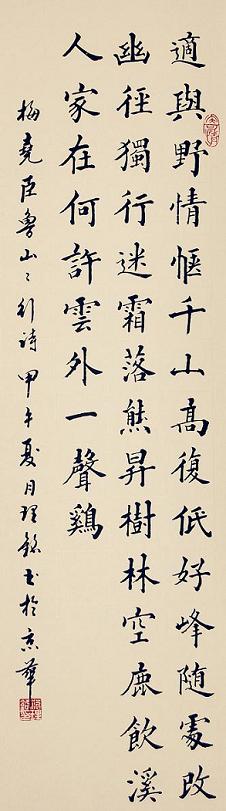 適與野情愜千山高復低好峰随處改
幽徑獨行迷霜落熊昇樹林空鹿飲溪
人家在何許雲外一聲鷄
梅堯臣魯山々行詩甲午夏月理銘书於京華